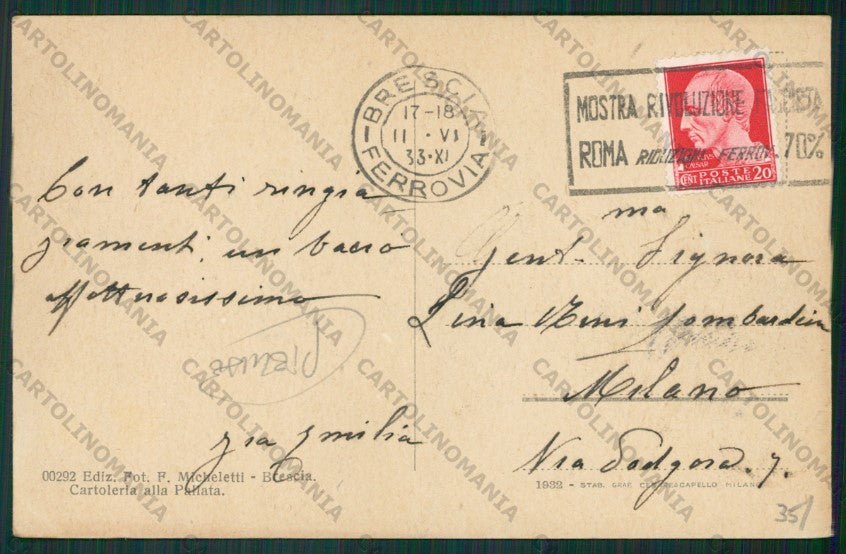 BRESCIA
17-18
11 · VI
33·XI
FERROVIA
MOSTRA RIVOLUZIONE FASCISTA
ROMA RIDUZIONI FERROV. 70%
CAESAR
CENT POSTE ITALIANE 20
Con tanti ringra
ziamenti, un bacio
affettuosissimo
zia Emilia
Gent.ma Signora
Lina Zeni Lombardini
Milano
Via Podgora. 7.
00292 Ediz. Fot. F. Micheletti - Brescia.
Cartoleria alla Pallata.
1932 - STAB. GRAF. CESARE CAPELLO MILANO
35/
CARTOLINOMANIA